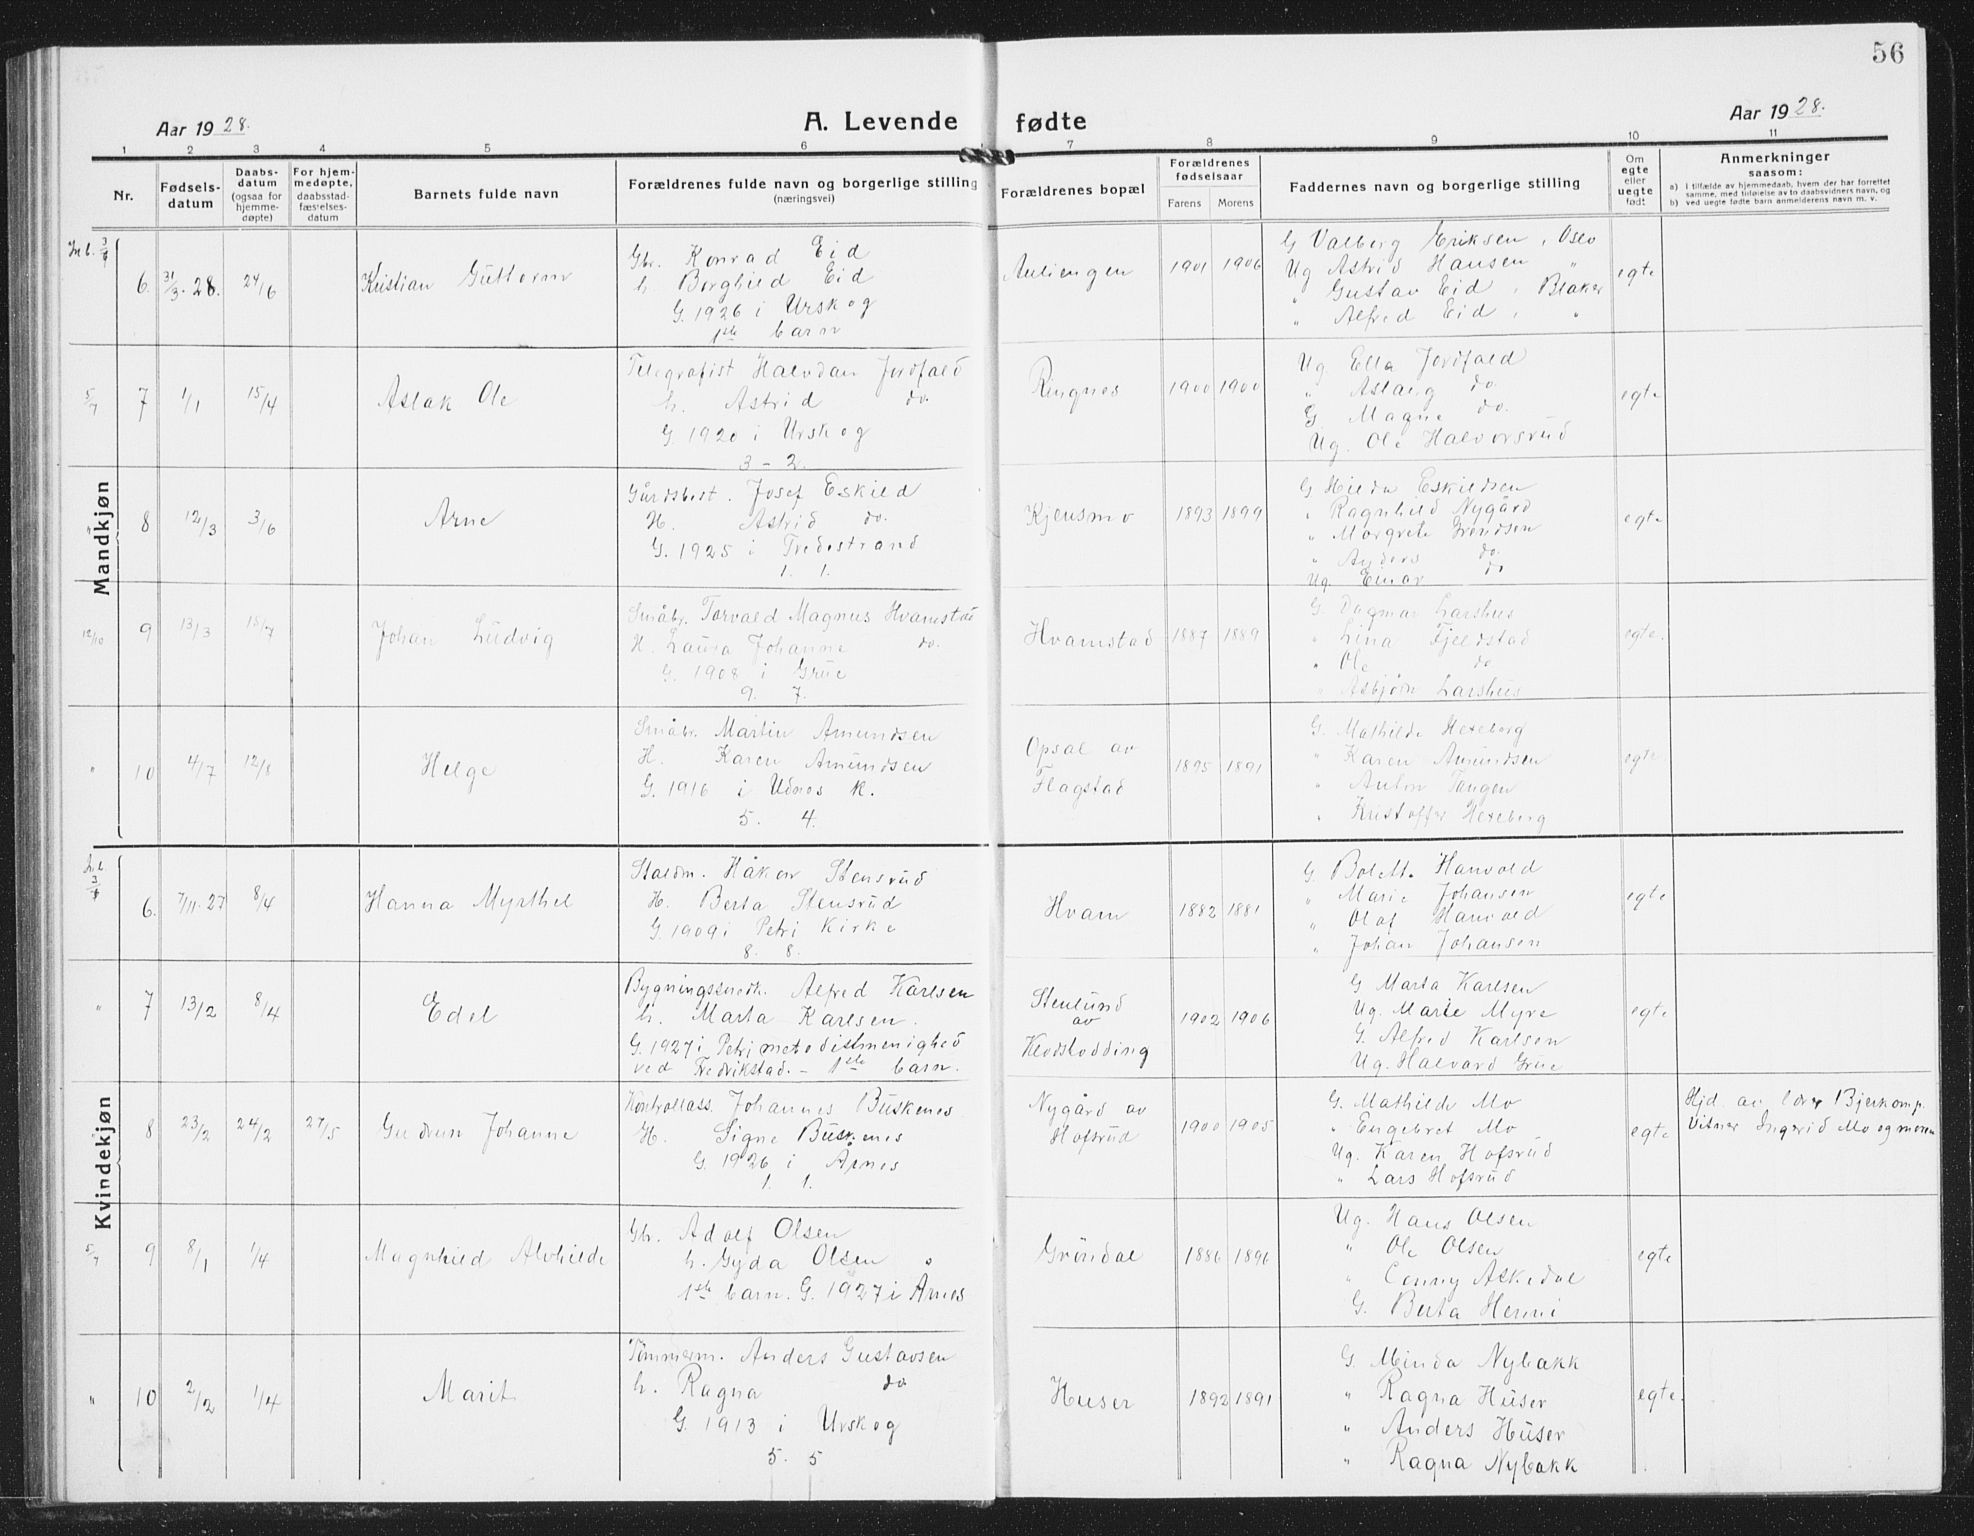 56
Aar 1928.
A. Levende fødte
Aar 1928.
1 2 3 4 5 6 7 8 9 10 11
Nr.
Fødsels-
datum
Daabs-
datum
(ogsaa for
hjemme-
døpte)
For hjem-
medøpte,
daabsstad-
fæstelses-
datum
Barnets fulde navn
Forældrenes fulde navn og borgerlige stilling
(næringsvei)
Forældrenes bopæl
Forældrenes
fødselsaar
Farens Morens
Faddernes navn og borgerlige stilling
Om
egte
eller
uegte
født
Anmerkninger
saasom:
a) I tilfælde av hjemmedaab, hvem der har forrettet
samme, med tilføielse av to daabsvidners navn, og
b) ved uegte fødte barn anmelderens navn m. v.
Mandkjøn
6. 31/3. 28. 24/6 Kristian Guttorm
Gbr. Konrad Eid
h. Borghild Eid
G. 1926 i Urskog
1ste barn
Auliengen 1901 1906
G Valborg Eriksen, Oslo
Ug Astrid Hansen "
" Gustav Eid, Blaker
" Alfred Eid, "
egte
5/7 7 1/1 15/4 Aslak Ole
Telegrafist Halvdan Jordfald
h. Astrid do.
G. 1920 i Urskog
3 - 2.
Ringnes 1900 1900
Ug Ella Jordfald
" Aslaug do.
G. Magne do.
Ug. Ole Halvorsrud
egte
" 8 12/3 3/6 Arne
Gårdsbest. Josef Eskild
H. Astrid do.
G. 1925 i Tvedestrand
1. 1.
Kjensmo 1893 1899
G Hilda Eskildsen
" Ragnhild Nygård
" Margrete Svendsen
" Anders do.
Ug. Einar do
egte
12/10 9 13/3 15/7 Johan Ludvig
Småbr. Torvald Magnus Hvamstad
H. Laura Johanne do.
G. 1908 i Grue
9. 7.
Hvamstad 1887 1889
G. Dagmar Larshus
" Lina Fjeldstad
" Ole do
" Asbjørn Larshus
egte.
" 10 4/7 12/8 Helge
Småbr. Martin Amundsen
H. Karen Amundsen
G. 1916 i Udnes K.
5. 4.
Opsal av
Flagstad
1895 1891
G. Mathilde Hexeberg
" Karen Amundsen
" Anton Tangen
" Kristoffer Hexeberg
egte
Kvindekjøn
6. 7/11. 27 8/4 Hanna Myrthel
Staldm. Håkon Stensrud
H. Berta Stensrud
G. 1909 i Petri Kirke
8. 8.
Hvam 1882 1881
G. Bolette Hanvold
" Marie Johansen
" Olaf Hanvold
" Johan Johansen
egte
" 7 13/2 8/4 Edel
Bygningssnedk. Alfred Karlsen
h. Marta Karlsen.
G. 1927 i Petri metodistmenighed
ved Fredrikstad. - 1ste barn.
Stenlund
av
Klodstodding
1902 1906
G Marta Karlsen
Ug. Marie Myre
G. Alfred Karlsen
Ug. Halvard Grue
egte
8 23/2 24/2 27/5 Gudrun Johanne
Kontrollass. Johannes Buskenes
H. Signe Buskenes
G. 1926 i Årnes
1. 1.
Nygård av
Hofsrud
1900 1905
G. Mathilde Mo
" Engebret Mo
Ug. Karen Hofsrud
" Lars Hofsrud
egte
Hjd. av lærer Bjerkamp.
Vitner Ingerid Mo og moren
5/7 9 8/1 1/4 Magnhild Alvhilde
Gbr. Adolf Olsen
h. Gyda Olsen
1ste barn. G. 1927 i Årnes
Grøndal 1886 1896
Ug. Hans Olsen
" Ole Olsen
" Conny Askedal
G. Berta Henni
egte
" 10 2/2 1/4 Marit
Tømmerm. Anders Gustavsen
h. Ragna do
G. 1913 i Urskog
5. 5
Huser 1892 1891
G. Minda Nybakk
" Ragna Huser
" Anders Huser
" Ragna Nybakk
egte.